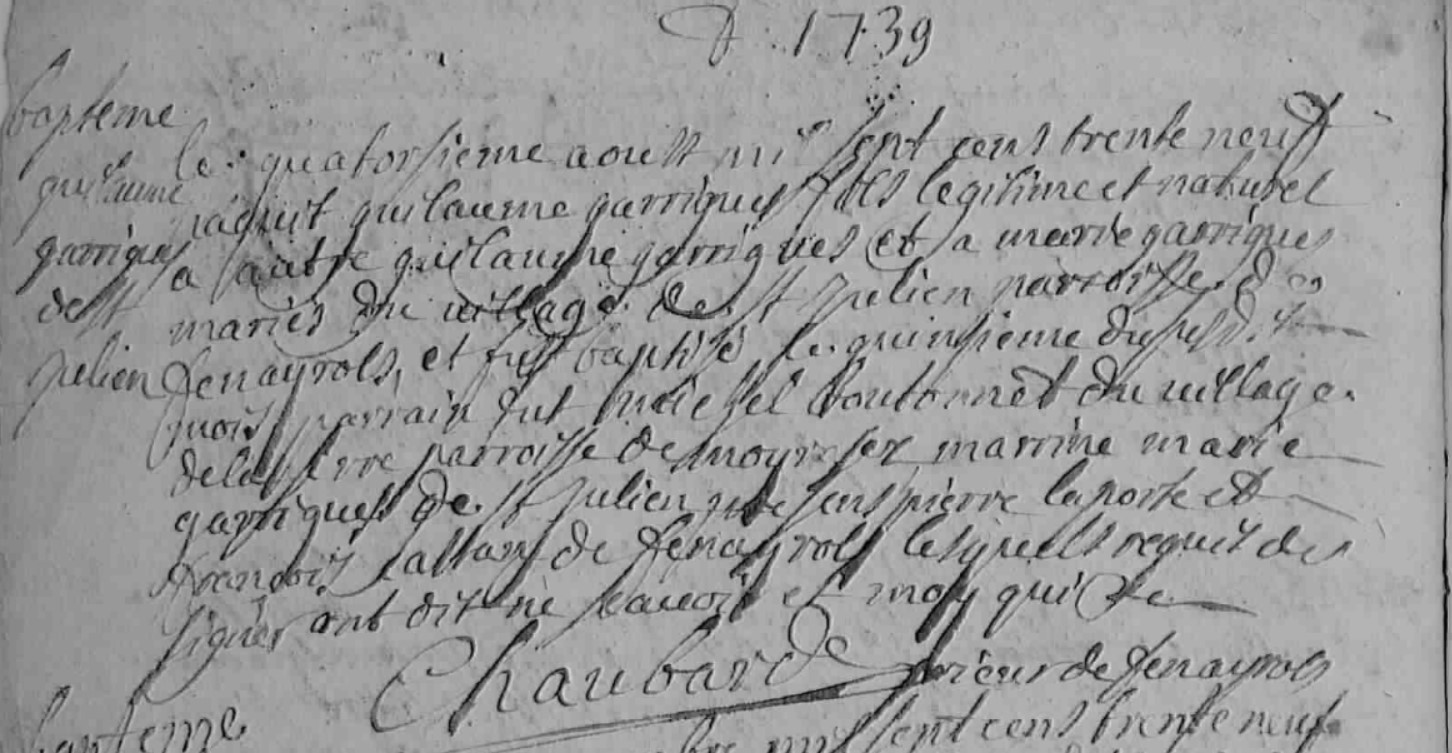 1739
bapteme
guilaume
garrigues
de st
julien
le quatorsieme aoust mil sept cens trente neuf
naquit guilaume garrigues fils legitime et naturel
a autre guilaume garrigues et a marie garrigues
maries du village de st julien parroisse de
fenayrols, et fut baptisé le quinsieme du susdit
mois parrain fut michel boutonnet du village
de la serre parroisse de marrine marie
garrigues de st julien presens pierre laporte et
francois de fenayrols lesquels requis de
signer ont dit ne scavoir et moy qui
Chaubard prieur de fenayrols
bapteme
mil sept cens trente neuf